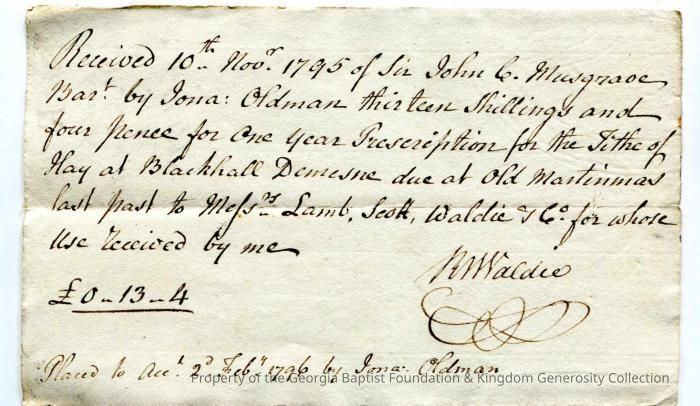 Received 10th Novr. 1795 of Sir John C. Musgrave
Bart. by Jona: Oldman thirteen Shillings and
four pence for One Year Prescription for the Tithe of
Hay at Blackhall Demesne due at Old Martinmas
last past to Messrs. Lamb, Scott, Waldie & Co. for whose
Use received by me
RWaldie
£0-13-4
Placed to Acct. 2d Feby 1796 by Jona: Oldman
Property of the Georgia Baptist Foundation & Kingdom Generosity Collection